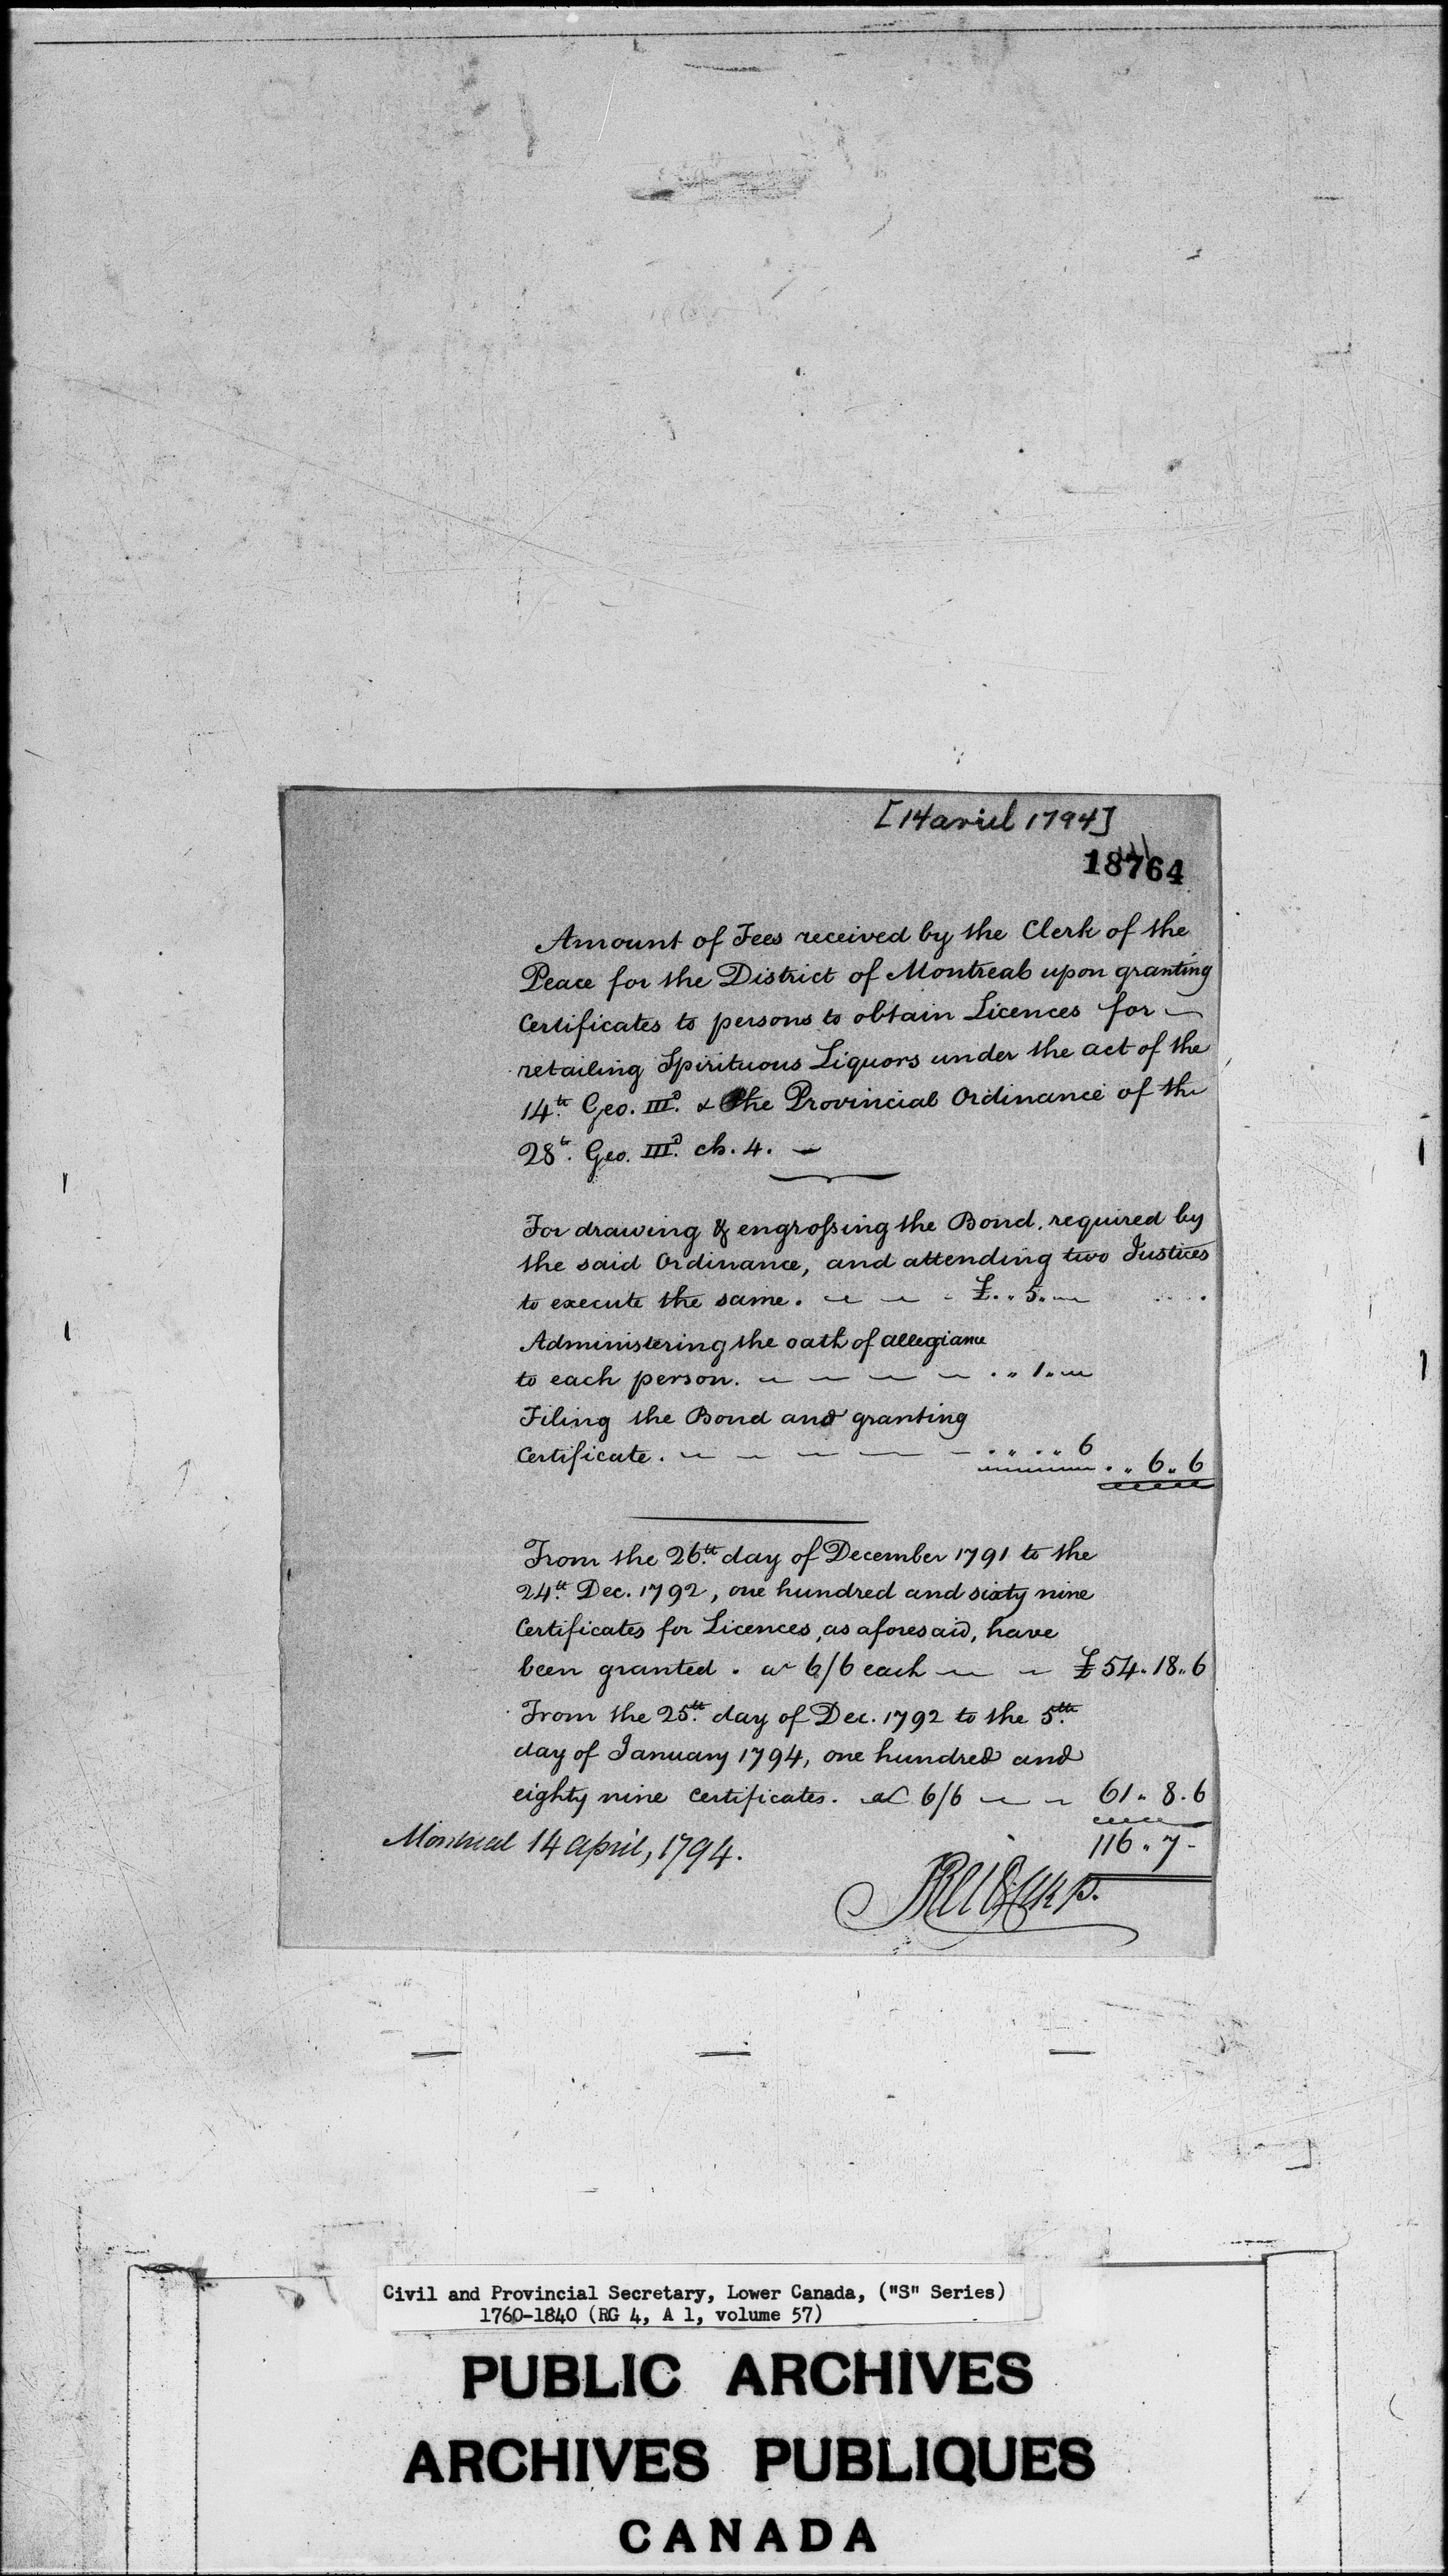 [14 avril 1794]
18764
Amount of Fees received by the Clerk of the
Peace for the District of Montreal upon granting
Certificates to persons to obtain Licences for
retailing Spirituous Liquors under the act of the
14th. Geo. IIId. & the Provincial Ordinance of the
28th. Geo. IIId. ch. 4. —
For drawing & engrossing the Bond required by
the said Ordinance, and attending two Justices
to execute the same. — — - £ . „ 5. „ —
Administering the oath of allegiance
to each person. — — — — . „ 1. „ —
Filing the Bond and granting
Certificate. — — — — - . „ . „ 6
. „ 6 „ 6
From the 26th. day of December 1791 to the
24th. Dec. 1792, one hundred and sixty nine
Certificates for Licences, as aforesaid, have
been granted. at 6/6 each — — £54. 18 „ 6
From the 25th. day of Dec. 1792 to the 5th.
day of January 1794, one hundred and
eighty nine certificates. at 6/6 — — 61 „ 8. 6
116 „ 7 -
Montreal 14 april, 1794.
Civil and Provincial Secretary, Lower Canada, ("S" Series)
1760-1840 (RG 4, A 1, volume 57)
PUBLIC ARCHIVES
ARCHIVES PUBLIQUES
CANADA